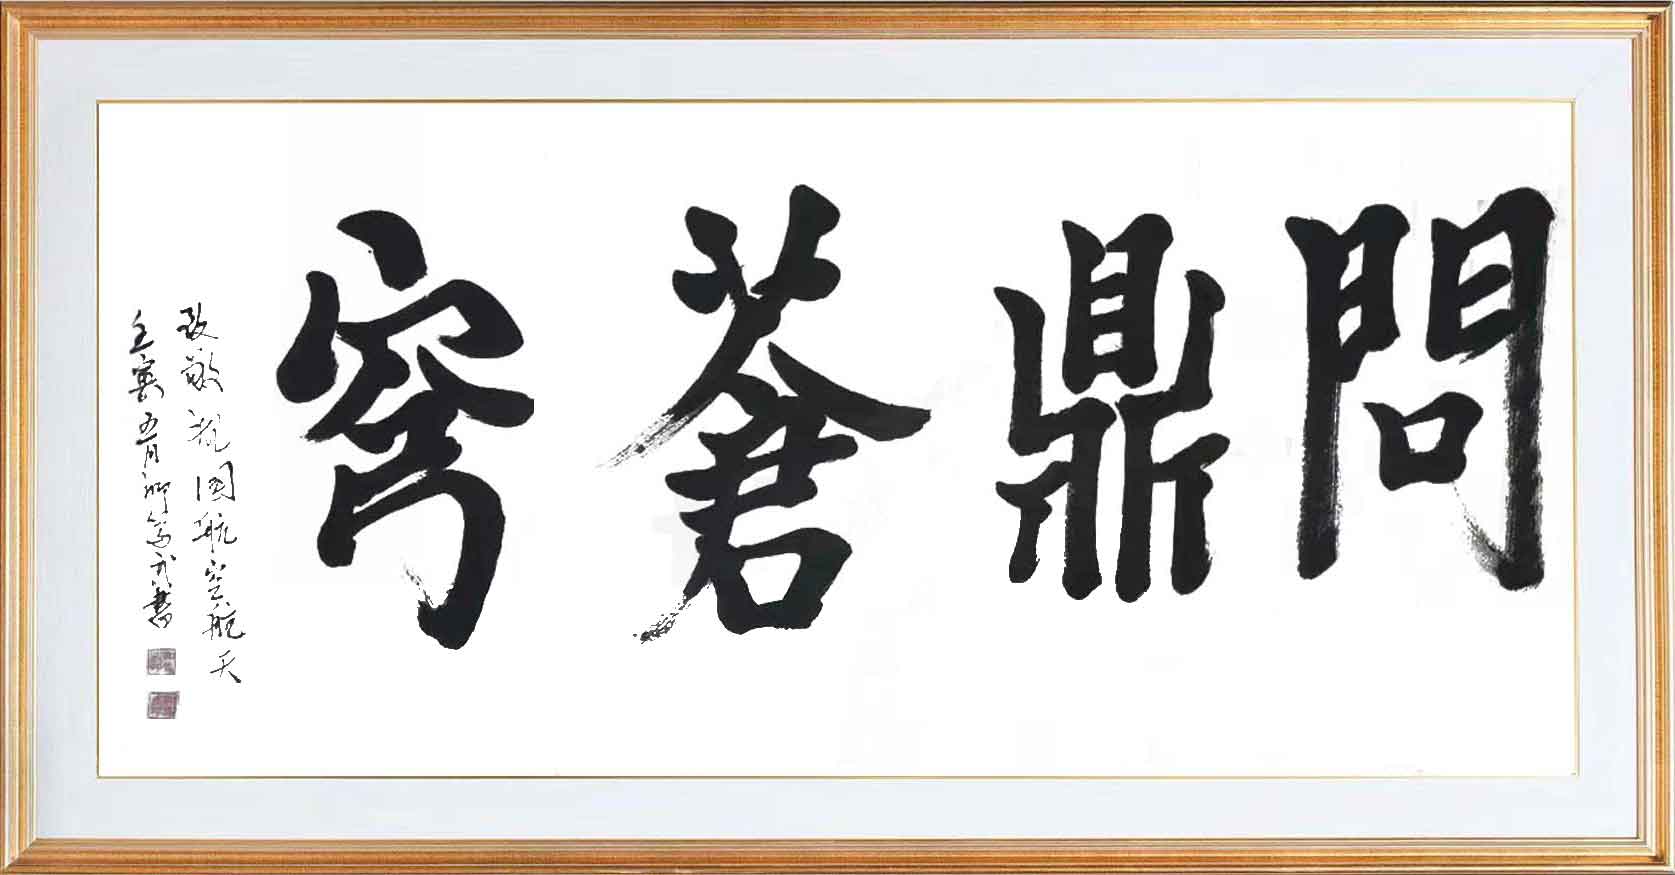 問鼎蒼穹
致敬祝国航空航天
壬寅五月 書